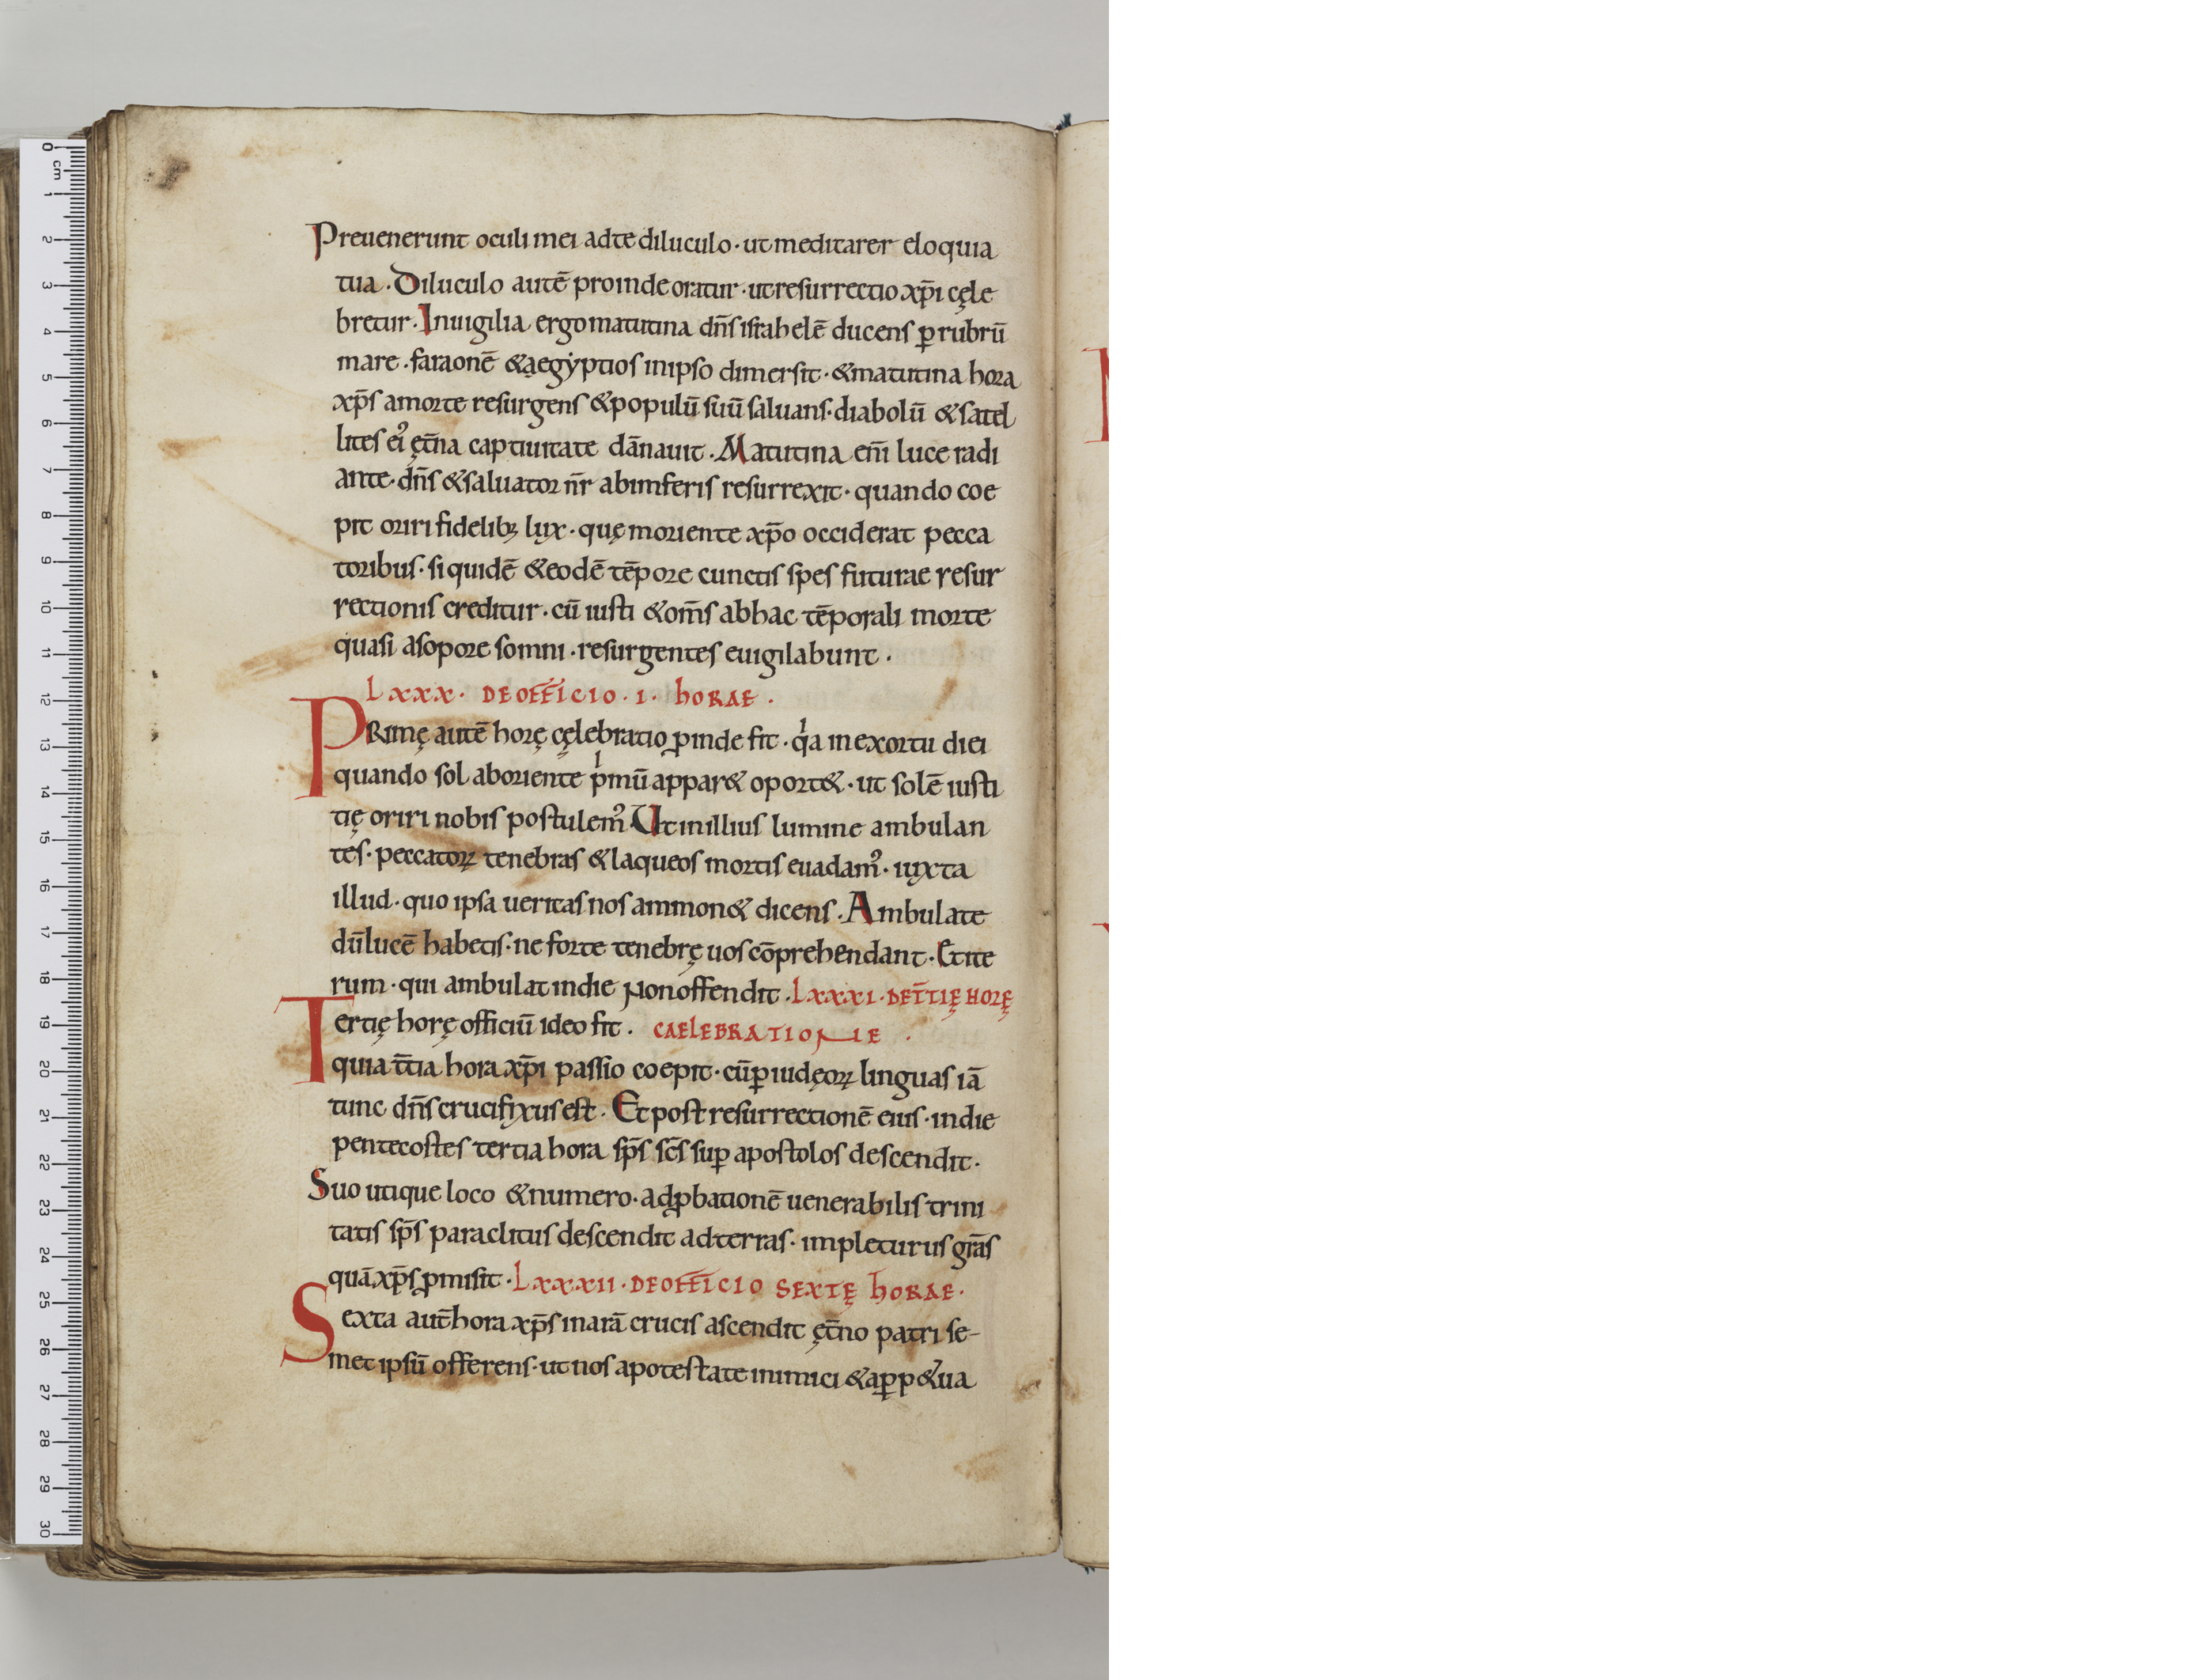 Preuenerunt oculi mei adte diluculo · ut meditarer eloquia
tua · Diluculo autē proinde oratur · ut resurrectio xp̄i cęle
bretur · Inuigilia ergo matutina dn̄s israhelē ducens ꝑ rubrū
mare · faraonē &aegyptios inipso dimersit · &matutina hora
xp̄s amorte resurgens &populū suū saluans · diabolū &satel
lites ei᾽ ęt̄na captiuitate dānauit · Matutina eni̅ luce radi
ante · dn̄s &saluator nr̄ abinferis resurrexit · quando coe
pit oriri fidelibꝫ lux · quę moriente xp̄o occiderat pecca
toribus · siquidē &eodē tēpore cunctis spes futurae resur
rectionis creditur · cū iusti &om̄s abhac tēporali morte
quasi asopore somni · resurgentes euigilabunt ·
LXXX · DE OFFICIO · I · HORAE ·
PRimę autē horę cęlebratio ꝓinde fit · qͥa inexortu diei
quando sol aboriente pͥmū appar& oport& · ut solē iusti
tię oriri nobis postulem᾽ Ut inillius lumine ambulan
tes · peccatoꝝ tenebras &laqueos mortis euadam᾽ · iuxta
illud · quo ipsa ueritas nos ammon& dicens · Ambulate
dū lucē habetis · ne forte tenebrę uos cōprehendant · Et ite
rum · qui ambulat indie Non offendit · LXXXI · DE T̄TIĘ HORĘ
Tertię horę officiū ideo fit · CAELEBRATIONE ·
quia t̄tia hora xp̄i passio coepit · cū ꝑ iudęoꝝ linguas iā
tunc dn̄s crucifixus est · Et post resurrectionē eius · indie
pentecostes tertia hora sp̄s sc̄s suꝑ apostolos descendit ·
Suo utique loco &numero · adꝓbationē uenerabilis trini
tatis sp̄s paraclitus descendit adterras · impleturus grās
quā xp̄s ꝓmisit · LXXXII · DE OFFICIO SEXTĘ HORAE ·
Sexta aut̄ hora xp̄s inarā crucis ascendit ęt̄no patri se-
met ipsū offerens · ut nos apotestate inimici &aꝑp&ua